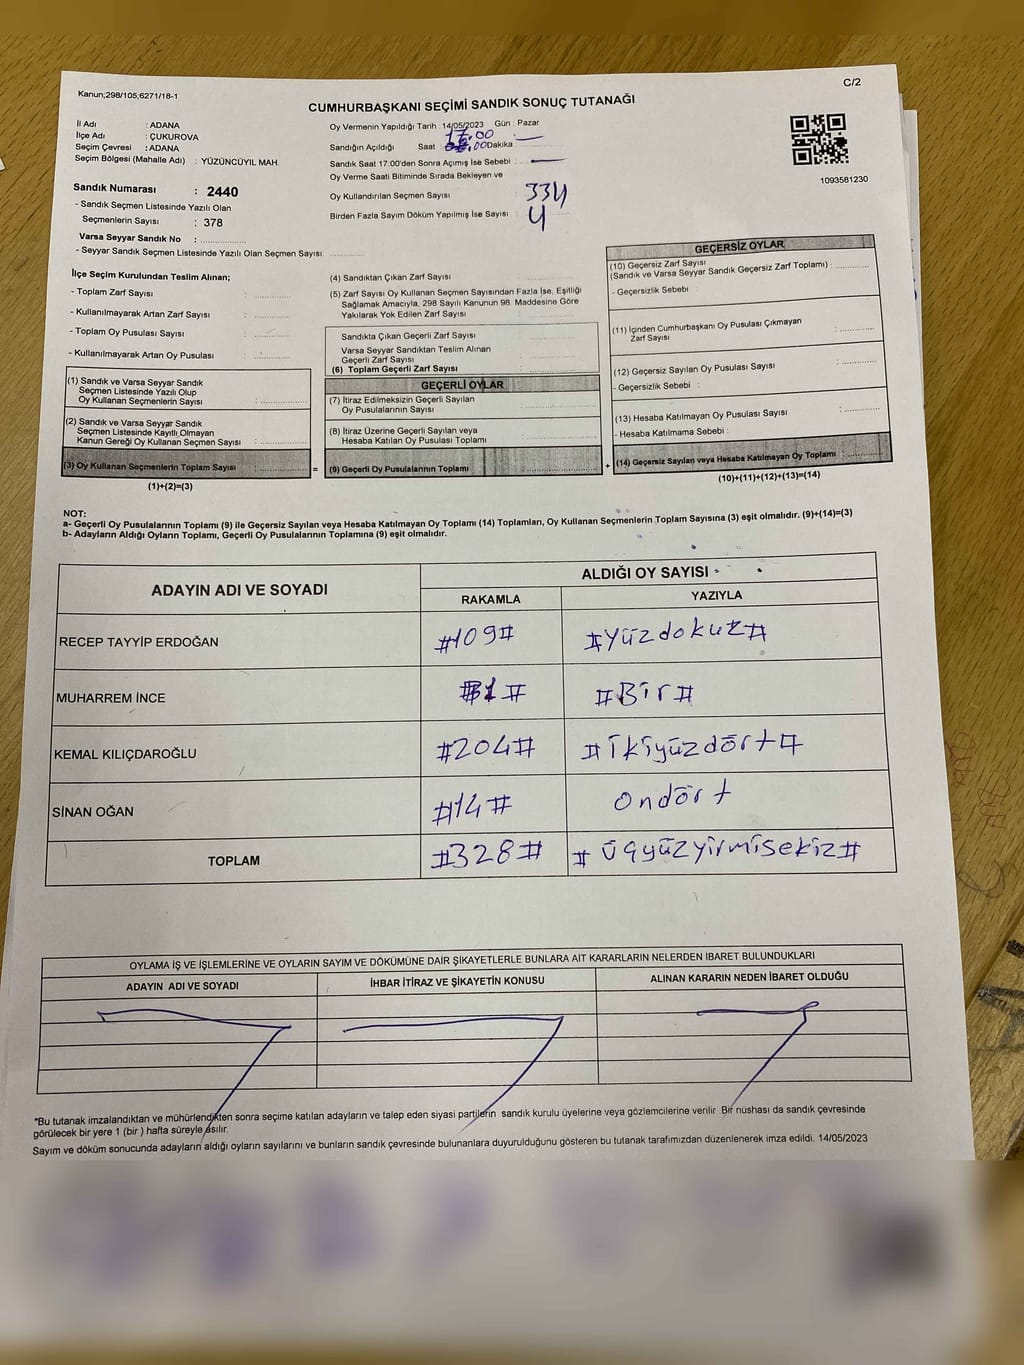 Kanun;298/105,6271/18-1
C/2
CUMHURBAŞKANI SEÇİMİ SANDIK SONUÇ TUTANAĞI
İl Adı : ADANA
İlçe Adı : ÇUKUROVA
Seçim Çevresi : ADANA
Seçim Bölgesi (Mahalle Adı) : YÜZÜNCÜYIL MAH.
Sandık Numarası : 2440
- Sandık Seçmen Listesinde Yazılı Olan
Seçmenlerin Sayısı : 378
Varsa Seyyar Sandık No :
- Seyyar Sandık Seçmen Listesinde Yazılı Olan Seçmen Sayısı:
Oy Vermenin Yapıldığı Tarih :14/05/2023 Gün : Pazar
Sandığın Açıldığı Saat 17:00 Dakika
Sandık Saat 17:00'den Sonra Açımış İse Sebebi :
Oy Verme Saati Bitiminde Sırada Bekleyen ve
Oy Kullandırılan Seçmen Sayısı : 334
Birden Fazla Sayım Döküm Yapılmış İse Sayısı : 4
1093581230
İlçe Seçim Kurulundan Teslim Alınan;
- Toplam Zarf Sayısı :
- Kullanılmayarak Artan Zarf Sayısı :
- Toplam Oy Pusulası Sayısı :
- Kullanılmayarak Artan Oy Pusulası :
(1) Sandık ve Varsa Seyyar Sandık
Seçmen Listesinde Yazılı Olup
Oy Kullanan Seçmenlerin Sayısı :
(2) Sandık ve Varsa Seyyar Sandık
Seçmen Listesinde Kayıtlı Olmayan
Kanun Gereği Oy Kullanan Seçmen Sayısı :
(3) Oy Kullanan Seçmenlerin Toplam Sayısı :
(1)+(2)=(3)
=
(4) Sandıktan Çıkan Zarf Sayısı
(5) Zarf Sayısı Oy Kullanan Seçmen Sayısından Fazla İse, Eşitliği
Sağlamak Amacıyla, 298 Sayılı Kanunun 98. Maddesine Göre
Yakılarak Yok Edilen Zarf Sayısı
Sandıkta Çıkan Geçerli Zarf Sayısı
Varsa Seyyar Sandıktan Teslim Alınan
Geçerli Zarf Sayısı
(6) Toplam Geçerli Zarf Sayısı
GEÇERLİ OYLAR
(7) İtiraz Edilmeksizin Geçerli Sayılan
Oy Pusulalarının Sayısı
(8) İtiraz Üzerine Geçerli Sayılan veya
Hesaba Katılan Oy Pusulası Toplamı
(9) Geçerli Oy Pusulalarının Toplamı
+
GEÇERSİZ OYLAR
(10) Geçersiz Zarf Sayısı
(Sandık ve Varsa Seyyar Sandık Geçersiz Zarf Toplamı) :
- Geçersizlik Sebebi :
(11) İçinden Cumhurbaşkanı Oy Pusulası Çıkmayan
Zarf Sayısı :
(12) Geçersiz Sayılan Oy Pusulası Sayısı :
- Geçersizlik Sebebi :
(13) Hesaba Katılmayan Oy Pusulası Sayısı :
- Hesaba Katılmama Sebebi :
(14) Geçersiz Sayılan veya Hesaba Katılmayan Oy Toplamı :
(10)+(11)+(12)+(13)=(14)
NOT:
a- Geçerli Oy Pusulalarının Toplamı (9) ile Geçersiz Sayılan veya Hesaba Katılmayan Oy Toplamı (14) Toplamları, Oy Kullanan Seçmenlerin Toplam Sayısına (3) eşit olmalıdır. (9)+(14)=(3)
b- Adayların Aldığı Oyların Toplamı, Geçerli Oy Pusulalarının Toplamına (9) eşit olmalıdır.
ADAYIN ADI VE SOYADI
ALDIĞI OY SAYISI
RAKAMLA YAZIYLA
RECEP TAYYİP ERDOĞAN #109# #Yüzdokuz#
MUHARREM İNCE #1# #Bir#
KEMAL KILIÇDAROĞLU #204# #ikiyüzdört#
SİNAN OĞAN #14# Ondört
TOPLAM #328# # üçyüzyirmisekiz#
OYLAMA İŞ VE İŞLEMLERİNE VE OYLARIN SAYIM VE DÖKÜMÜNE DAİR ŞİKAYETLERLE BUNLARA AİT KARARLARIN NELERDEN İBARET BULUNDUKLARI
ADAYIN ADI VE SOYADI İHBAR İTİRAZ VE ŞİKAYETİN KONUSU ALINAN KARARIN NEDEN İBARET OLDUĞU
*Bu tutanak imzalandıktan ve mühürlendikten sonra seçime katılan adayların ve talep eden siyasi partilerin sandık kurulu üyelerine veya gözlemcilerine verilir. Bir nüshası da sandık çevresinde
görülecek bir yere 1 (bir ) hafta süreyle asılır.
Sayım ve döküm sonucunda adayların aldığı oyların sayılarını ve bunların sandık çevresinde bulunanlara duyurulduğunu gösteren bu tutanak tarafımızdan düzenlenerek imza edildi. 14/05/2023